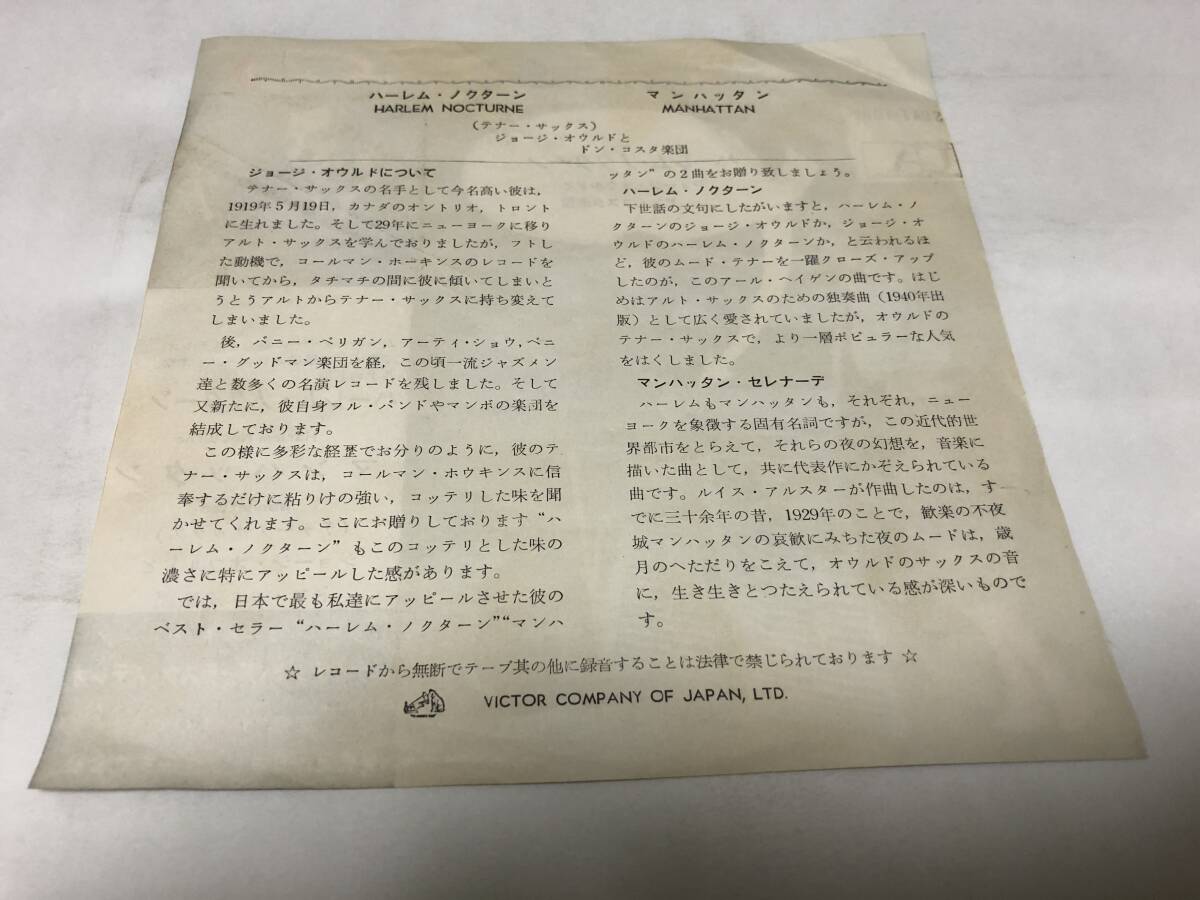 ハーレム・ノクターン
HARLEM NOCTURNE
マンハッタン
MANHATTAN
(テナー・サックス)
ジョージ・オウルドと
ドン・コスタ楽団
ジョージ・オウルドについて
テナー・サックスの名手として今名高い彼は,
1919年5月19日, カナダのオントリオ, トロント
に生れました。そして29年にニューヨークに移り
アルト・サックスを学んでおりましたが, フトし
た動機で, コールマン・ホーキンスのレコードを
聞いてから, タチマチの間に彼に傾いてしまいと
うとうアルトからテナー・サックスに持ち変えて
しまいました。
後, バニー・ベリガン, アーティ・ショウ, ベニ
ー・グッドマン楽団を経, この頃一流ジャズメン
達と数多くの名演レコードを残しました。そして
又新たに, 彼自身フル・バンドやマンボの楽団を
結成しております。
この様に多彩な経歴でお分りのように, 彼のテ
ナー・サックスは, コールマン・ホウキンスに信
奉するだけに粘りけの強い, コッテリした味を聞
かせてくれます。ここにお贈りしております“ハ
ーレム・ノクターン”もこのコッテリとした味の
濃さに特にアッピールした感があります。
では, 日本で最も私達にアッピールさせた彼の
ベスト・セラー“ハーレム・ノクターン”“マンハ
ッタン”の2曲をお贈り致しましょう。
ハーレム・ノクターン
下世話の文句にしたがいますと, ハーレム・ノ
クターンのジョージ・オウルドか, ジョージ・オ
ウルドのハーレム・ノクターンか, と云われるほ
ど, 彼のムード・テナーを一躍クローズ・アップ
したのが, このアール・ヘイゲンの曲です。はじ
めはアルト・サックスのための独奏曲(1940年出
版)として広く愛されていましたが, オウルドの
テナー・サックスで, より一層ポピュラーな人気
をはくしました。
マンハッタン・セレナーデ
ハーレムもマンハッタンも, それぞれ, ニュー
ヨークを象徴する固有名詞ですが, この近代的世
界都市をとらえて, それらの夜の幻想を, 音楽に
描いた曲として, 共に代表作にかぞえられている
曲です。ルイス・アルスターが作曲したのは, す
でに三十余年の昔, 1929年のことで, 歓楽の不夜
城マンハッタンの哀歓にみちた夜のムードは, 歳
月のへだたりをこえて, オウルドのサックスの音
に, 生き生きとつたえられている感が深いもので
す。
☆ レコードから無断でテープ其の他に録音することは法律で禁じられております ☆
VICTOR COMPANY OF JAPAN, LTD.